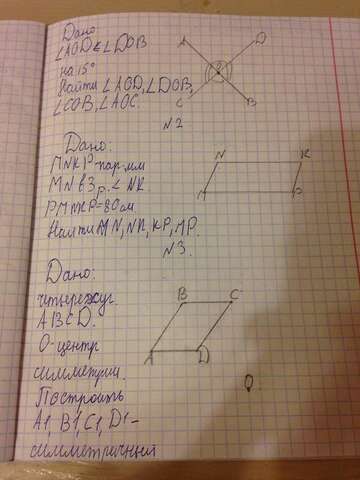 Дано
∠AOD < ∠DOB
на 15°
Найти ∠AOD, ∠DOB,
∠COB, ∠AOC.
A D
O
C B
N2
Дано:
MNKP-пар.мм
MN в 3р. < NK
PMNKP=80см
Найти MN, NK, KP, MP.
N K
M P
N3.
Дано:
четырехуг.
ABCD.
O-центр
симметрии.
Построить
A1, B1, C1, D1-
симметричный
B C
A D
O